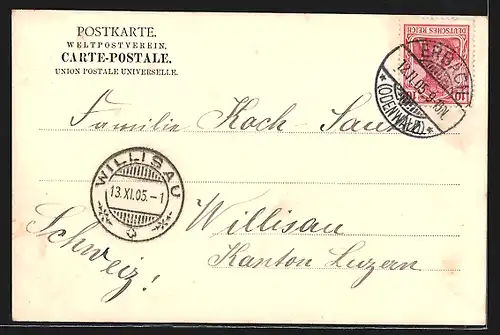 POSTKARTE.
WELTPOSTVEREIN.
CARTE-POSTALE.
UNION POSTALE UNIVERSELLE.
DEUTSCHES REICH
10
ERBACH
12.11.05.
*(ODENWALD)*
Familie Koch-
WILLISAU
13.XI.05.-1
Willisau
Kanton Luzern
Schweiz!